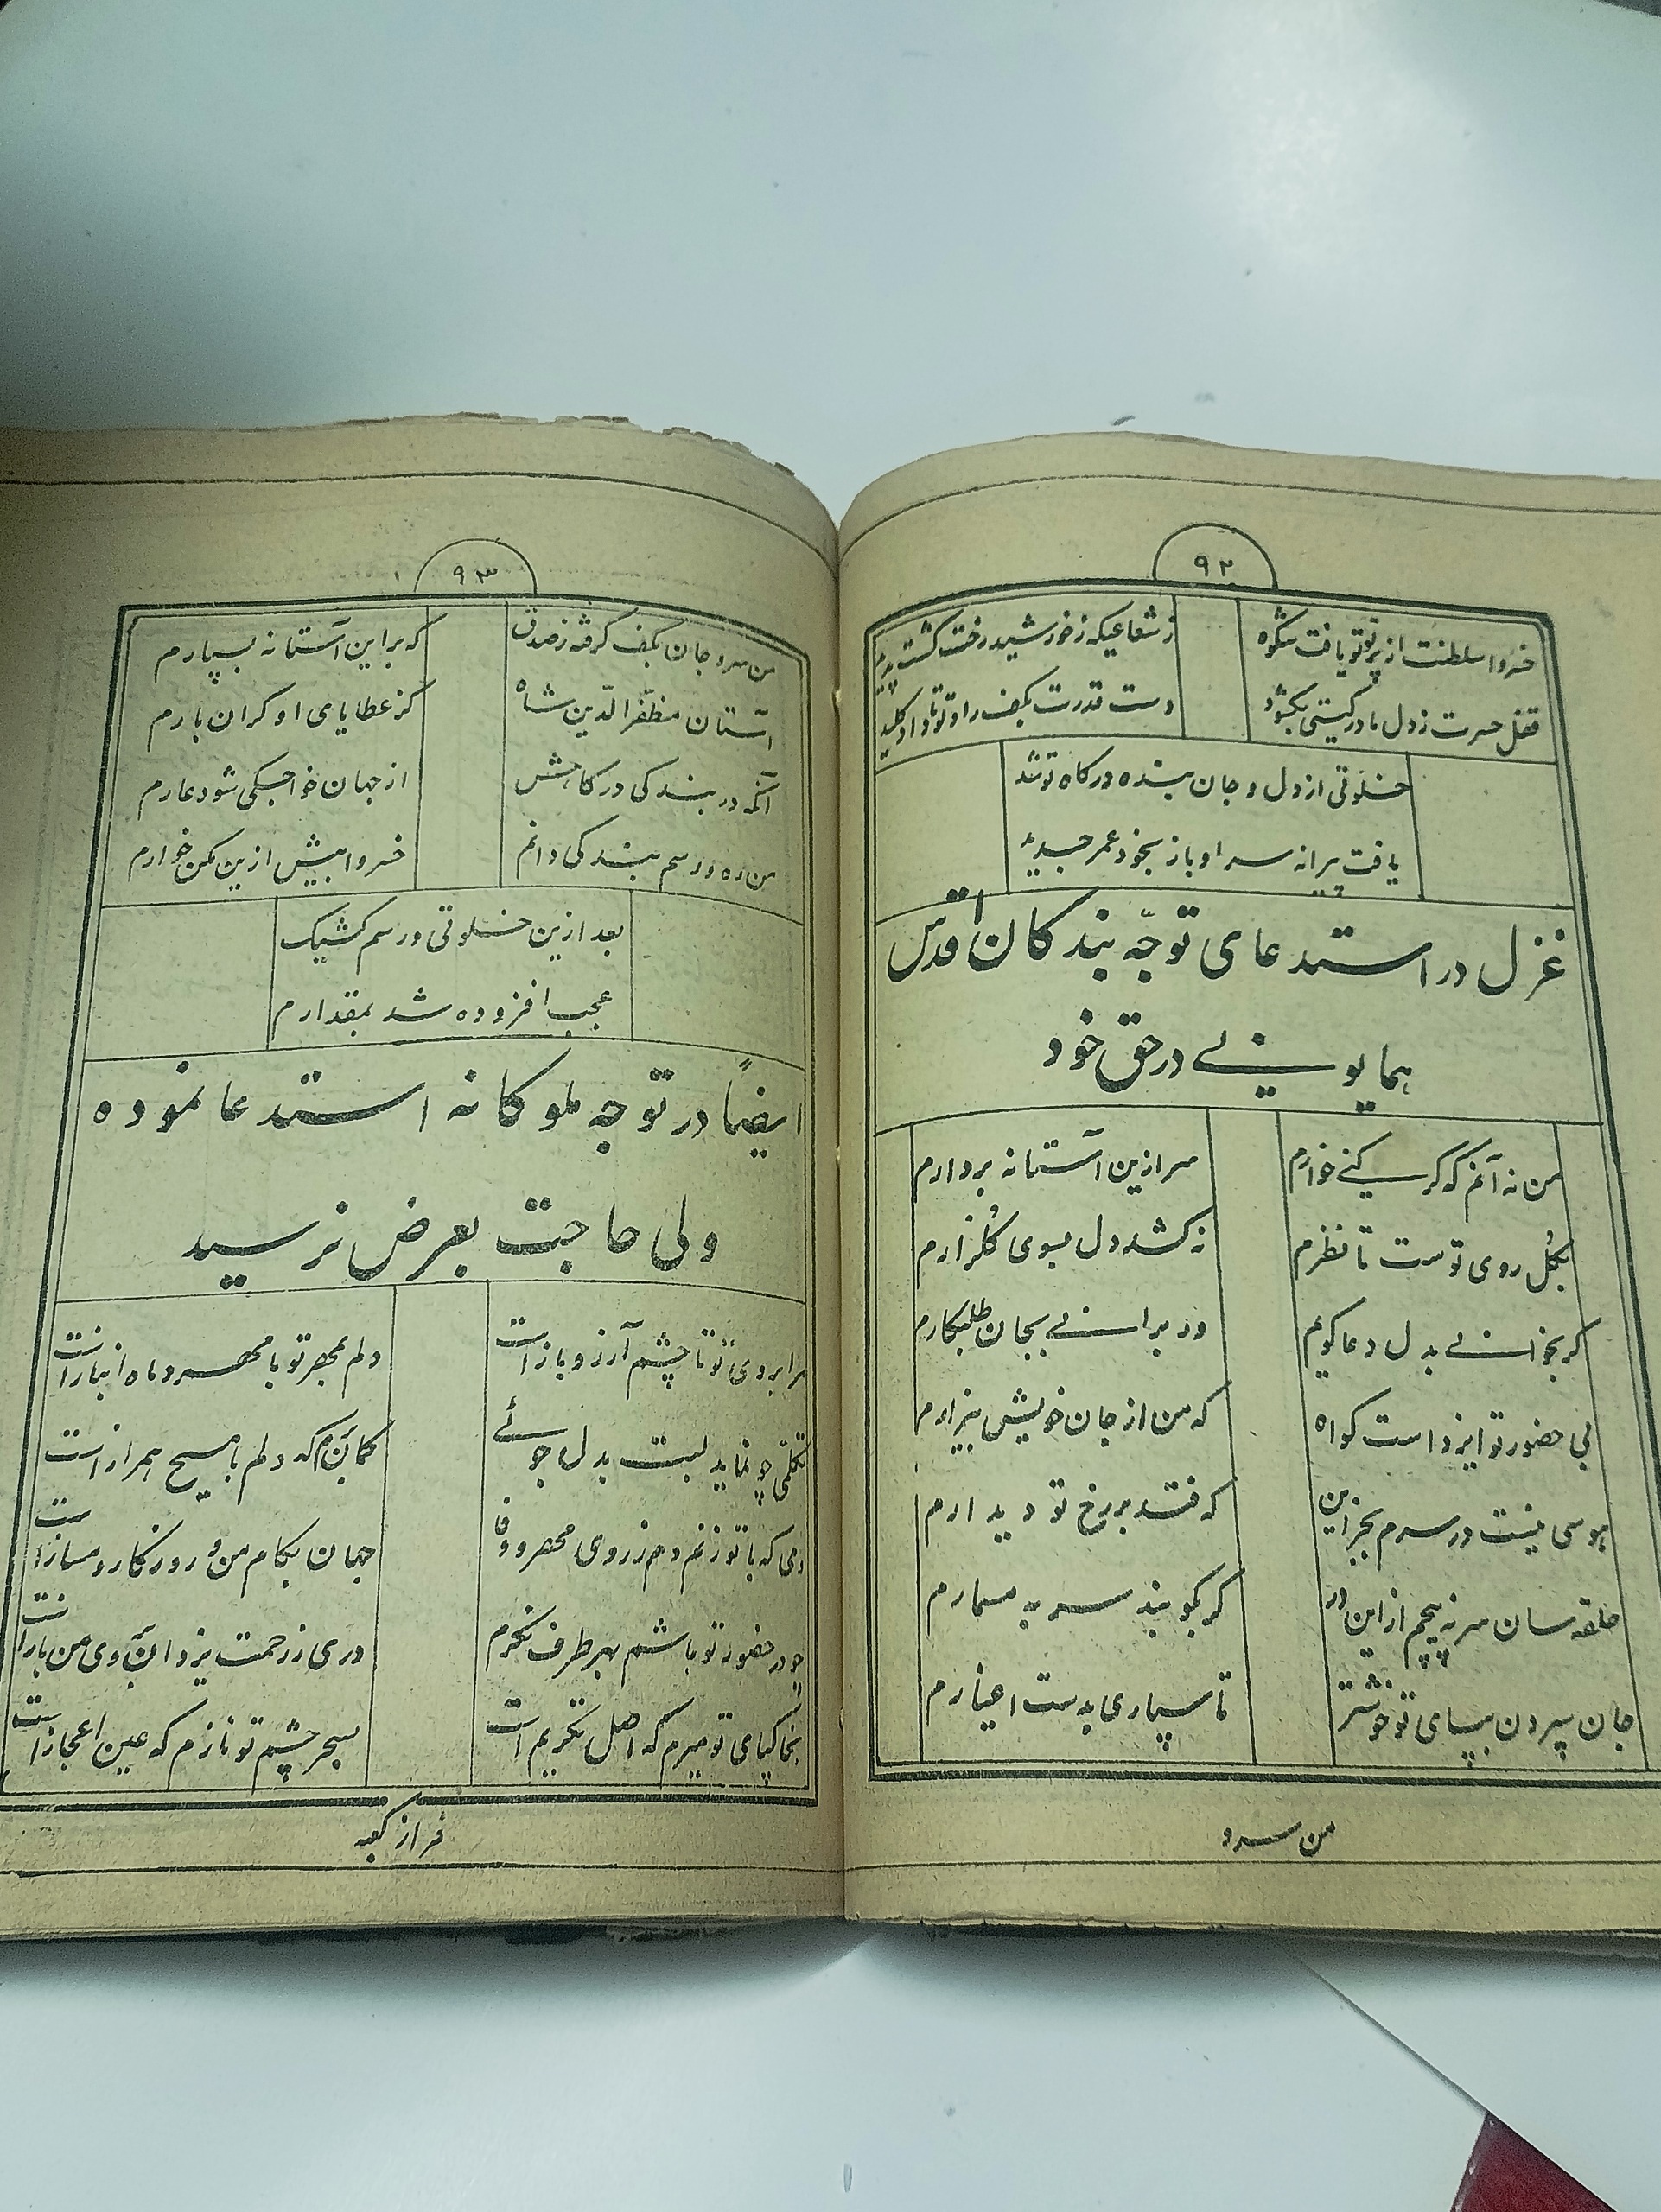 ۹۲
خسروا سلطنت از پرتو تو یافت شکوه
ز شعاعیکه ز خورشید رخت گشت پدید
قفل حسرت ز دل مادر گیتی بگشود
دست قدرت بکف راد تو تا داد کلید
خلوتی از دل و جان بنده درگاه تو شد
یافت پیرانه سر او باز بخود عمر جدید
غزل در استدعای توجّه بندگان اقدس
همایونے در حق خود
من نه آنم که گر کنے خوارم
سر ازین آستانه بردارم
بگل روی توست تا نظرم
نه کشد دل بسوی گلزارم
گر بخوانے بدل دعا گویم
ور برانے بجان طلبکارم
بی حضور تو ایزد است گواه
که من از جان خویش بیزارم
هوسی نیست در سرم بجز این
که فتد بر رخ تو دیدارم
حلقه سان سر نه پیچم از این در
گر بکوبند سر به مسمارم
جان سپردن بپای تو خوشتر
تا سپاری بدست اغیارم
من سرو
۹۳
من سر و جان بکف گرفته ز صدق
که بر این آستانه بسپارم
آستان مظفّر الدّین شاه
کز عطایای او گران بارم
آنکه در بندگی درگاهش
از جهان خواجگی شود عارم
من ره و رسم بندگی دانم
خسروا بیش ازین مکن خوارم
بعد ازین خلوتی و رسم کشیک
عجب افزوده شد بمقدارم
ایضاً در توجه ملوکانه استدعا نموده
ولی حاجت بعرض نرسید
مرا بروی تو تا چشم آرزو باز است
دلم بمهر تو با مهر و ماه انباز است
تکلمی چو نماید لبت بدلجوئے
گمانم که دلم با مسیح همراز است
دمی که با تو زنم دم ز روی مهر و وفا
جهان بکام من و روزگار دمساز است
چو در حضور تو باشم بهر طرف نگرم
دری ز رحمت یزدان بروی من باز است
بخاکپای تو میرم که اصل تکریم است
بسحر چشم تو نازم که عین اعجاز است
فراز کعبه